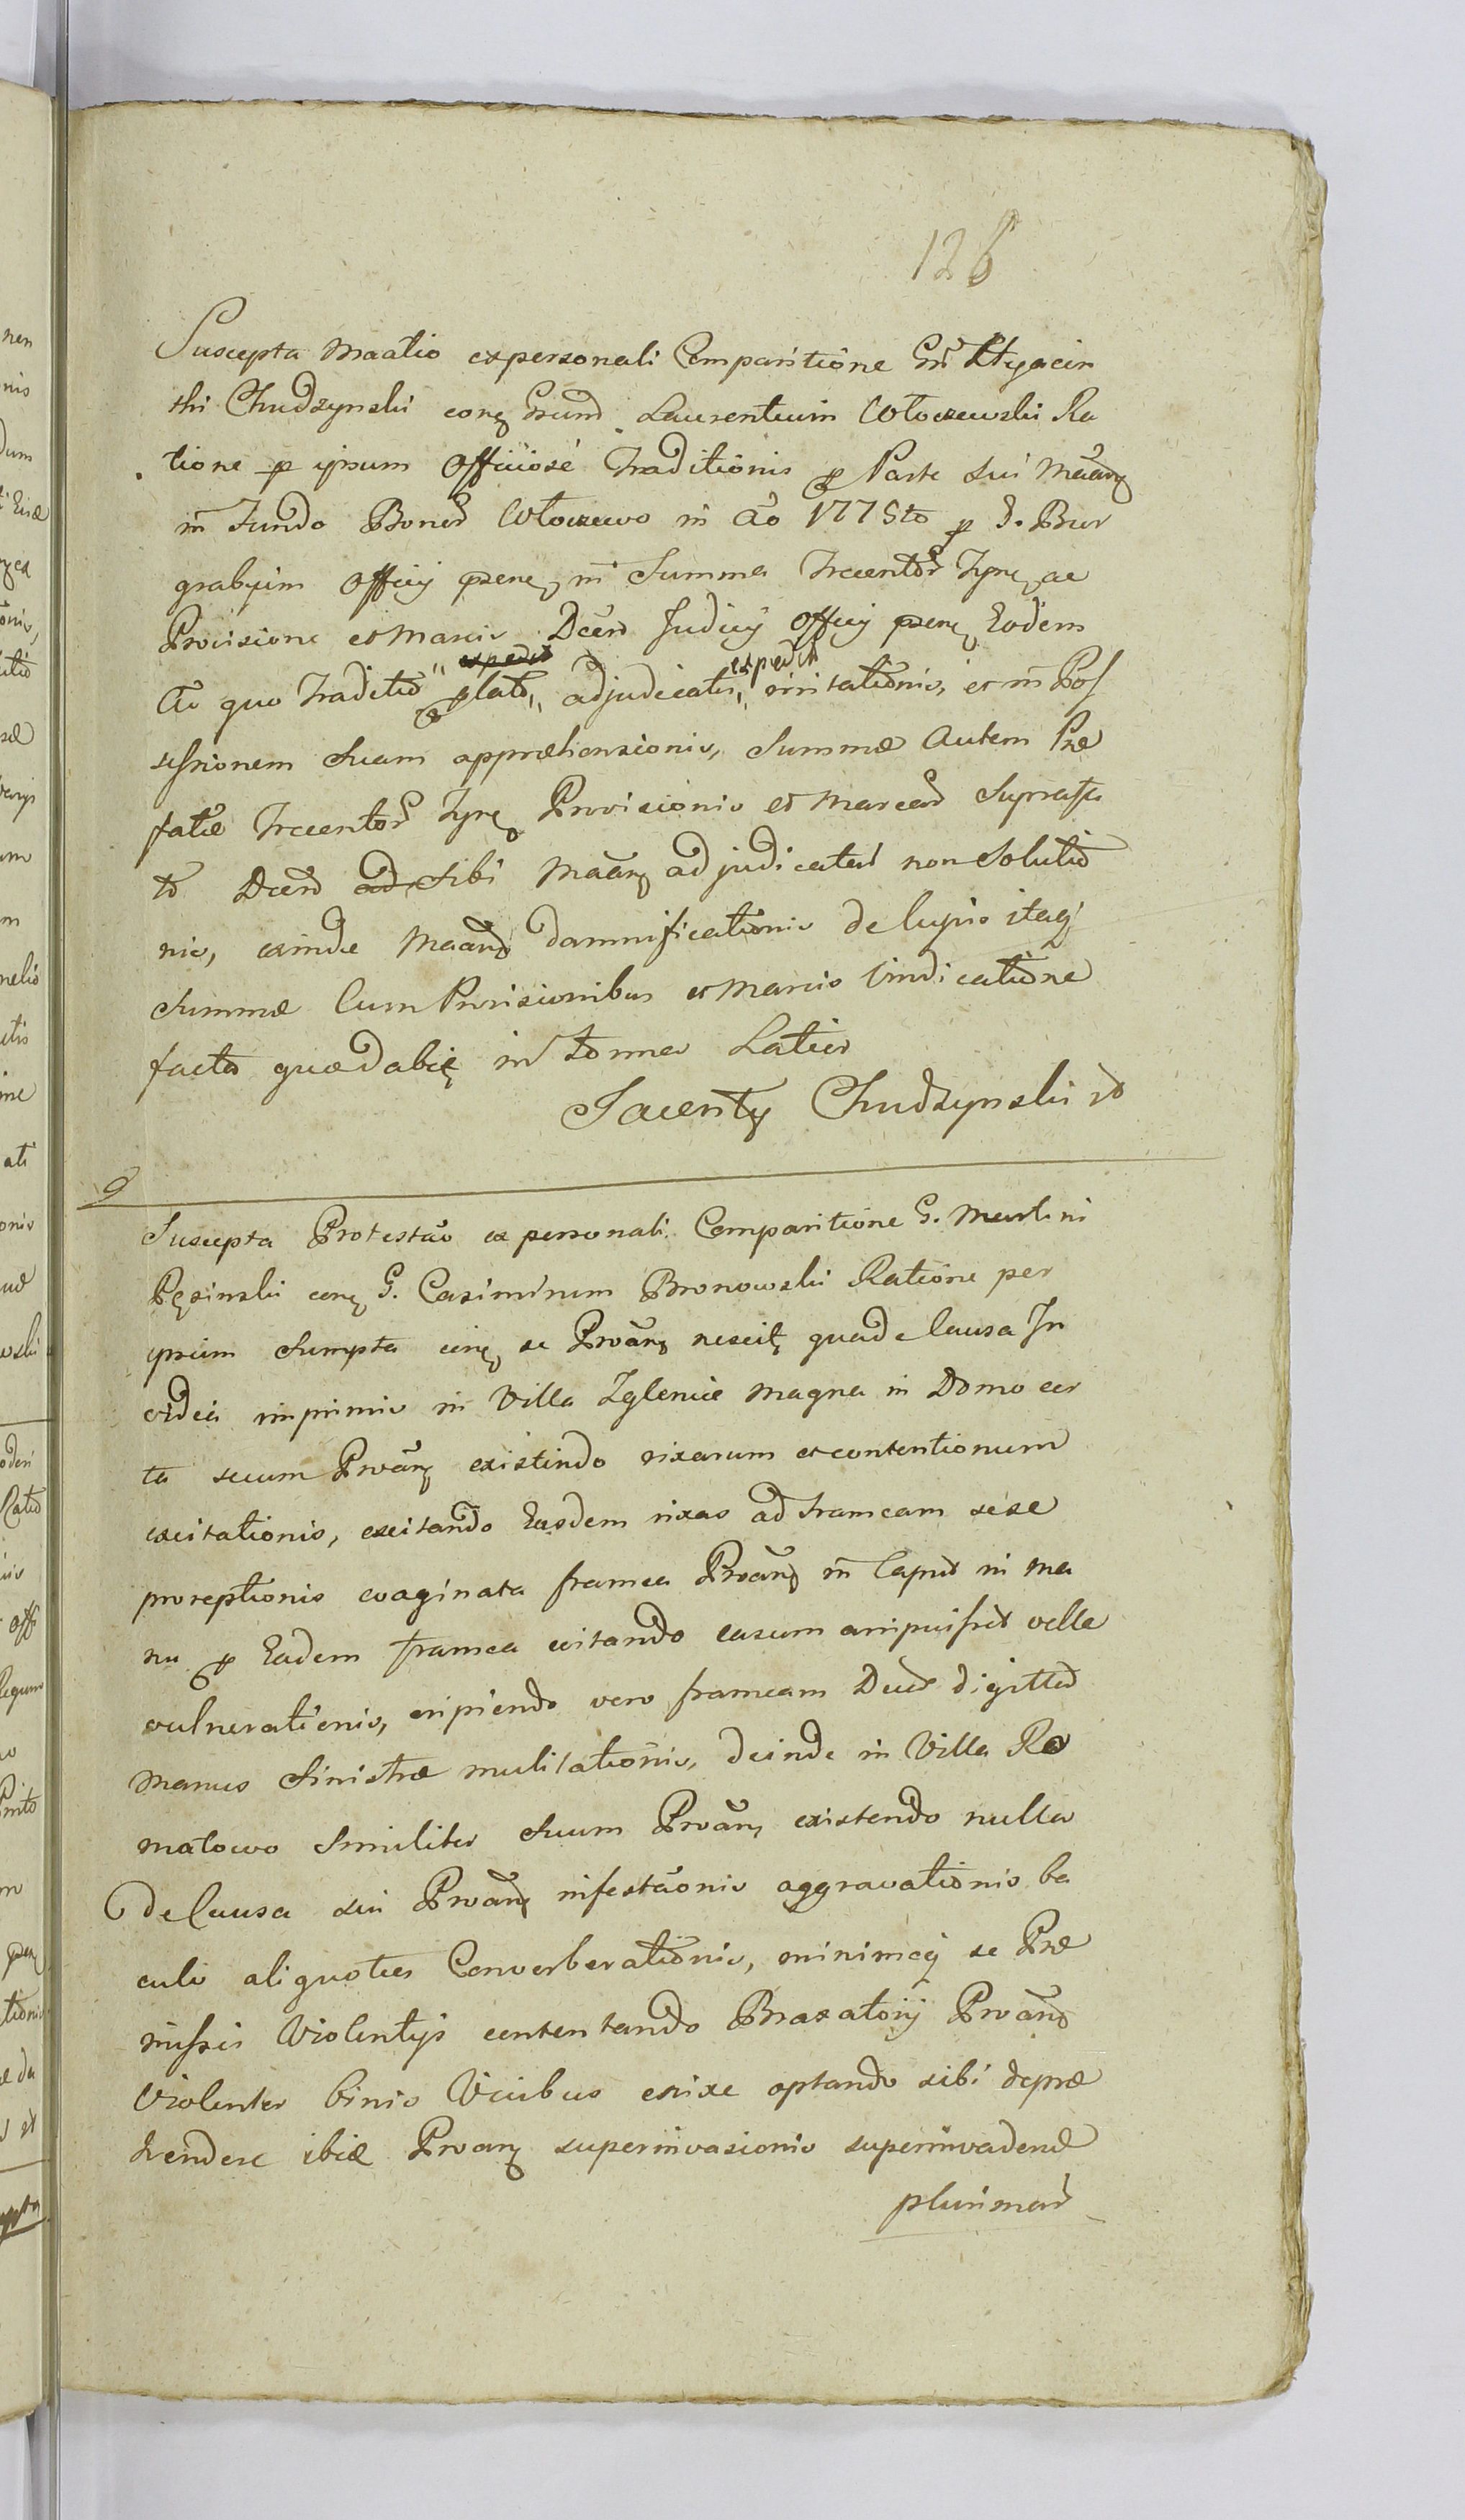 126
Suscepta Maãtio ex personali Comparitione Gñi Hyacin
thi Chudzynski conq Grund Laurentium Włoczewski Ra
tione p ipsum Officiosè Traditionis p Parte sui Maanq
in Fundo Bonor Włoczewo in Ao 1775to p G. Bur
grabium Officij pzenq in Summa Trecentor Tynq ac
Provisione et Marcis Decem Judicij Officij pzenq Eodem
Ao quo Traditio expedit plato, adjudicatis, expedit irritationis, et in Pos
sessionem suam appræhensionis, Summæ Autem Præ
fatæ Trecentor Tynq Provisionis et Marcar Suprasc
to Decem ad sibi Maanq adjudicatar non Solutio
nis, exinde Maanq damnificationis de cujus itaq
Summæ Cum Provisionibus et Marcis Vindicatione
facta quædabit in Forma Latior
Jacenty Chudzynski
Suscepta Protestão ex personali Comparitione G. Martini
Pęsinski conq G. Casimirum Bronowski Ratione per
ipsum Sumpta conq se Proãnq nescit qua de Causa In
vidia imprimis in Villa Zglenice Magna in Domo cer
ta secum Proãnq existendo rixarum et contentionum
excitationis, excitando Easdem rixas ad frameam sese
proreptionis evaginata framea Proãnq in Caput ni ma
nu p Eadem framea evitando casum arripuisset velle
vulnerationis, eripiendo vero frameam Duor digittor
Manus Sinistræ mutilationis, deinde in Villa Ro
matowo Similiter Secum Proãnq existendo nulla
de Causa sui Proãnq infestãonis aggravationis ba
culo aliquoties Converberationis, minimeq se Præ
missis Violentijs contentando Braxatorij Proãnq
Violenter binis Vicibus enixe optando sibi depræ
hendere ibiq Proãnq superinvasionis superinvadend
plurimar